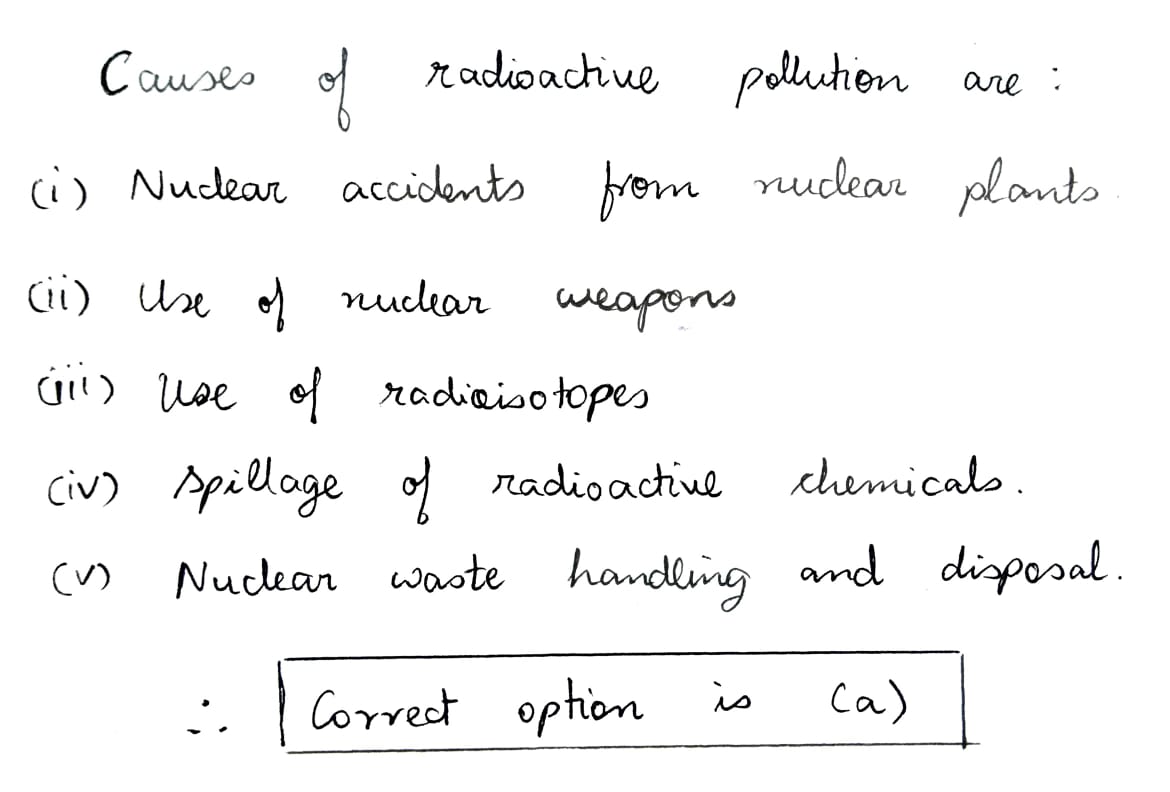 Causes of radioactive pollution are :
(i) Nuclear accidents from nuclear plants
(ii) Use of nuclear weapons
(iii) Use of radioisotopes
(iv) Spillage of radioactive chemicals.
(v) Nuclear waste handling and disposal.
∴ Correct option is (a)